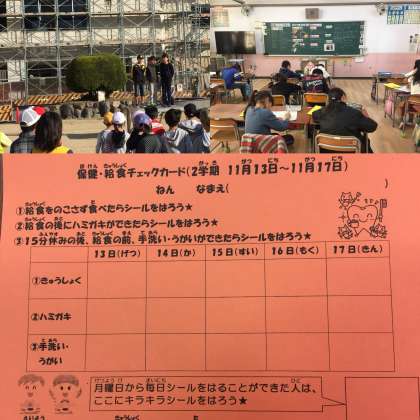 保健・給食チェックカード(2学期 11月13日～11月17日)
ねん なまえ( )
①給食をのこさず食べたらシールをはろう★
②給食の後にハミガキができたらシールをはろう★
③15分休みの後、給食の前、手洗い・うがいができたらシールをはろう★
13日(げつ) 14日(か) 15日(すい) 16日(もく) 17日(きん)
①きゅうしょく
②ハミガキ
③手洗い・
うがい
月曜日から毎日シールをはることができた人は、
ここにキラキラシールをはろう★